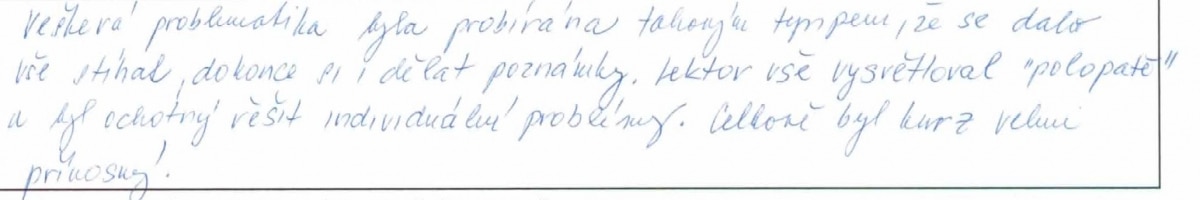 Veškerá problematika byla probírána takovým tempem, že se dalo
vše stíhat, dokonce si i dělat poznámky. Lektor vše vysvětloval "polopatě"
a byl ochotný řěšit individuální problémy. Celkově byl kurz velmi
přínosný.